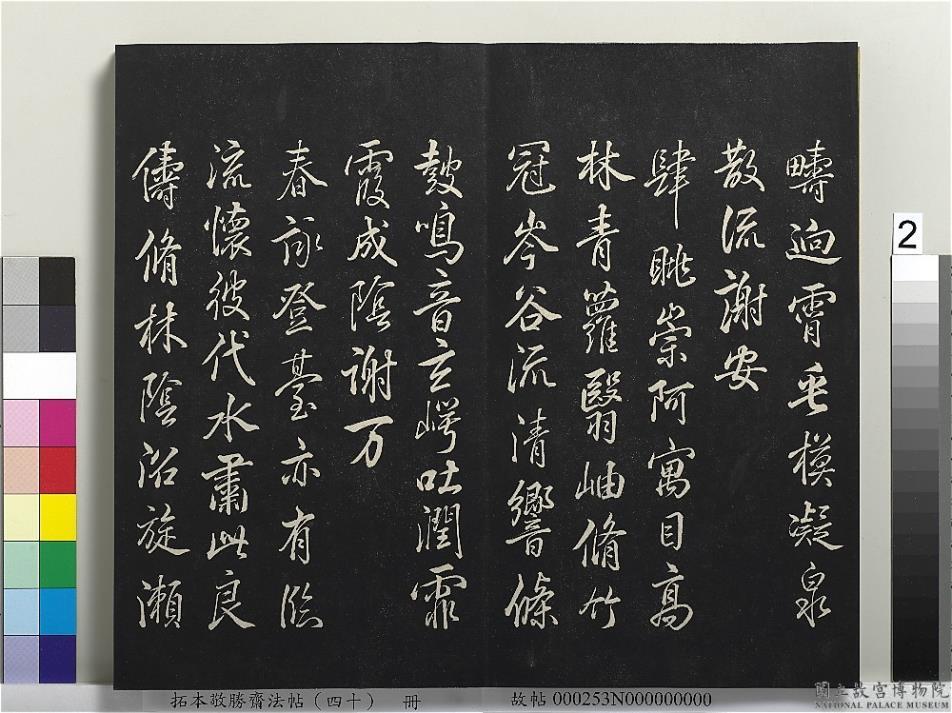 疇逈霄垂模凝泉
散流謝安
肆眺崇阿寓目高
林青蘿翳岫脩竹
冠岑谷流清響條
鼓鳴音玄崿吐潤霏
霞成陰謝万
春詠登臺亦有臨
流懷彼伐水肅此良
儔脩林陰沼旋瀨
2
拓本敬勝齋法帖（四十） 冊
故帖000253N000000000
國立故宮博物院
NATIONAL PALACE MUSEUM